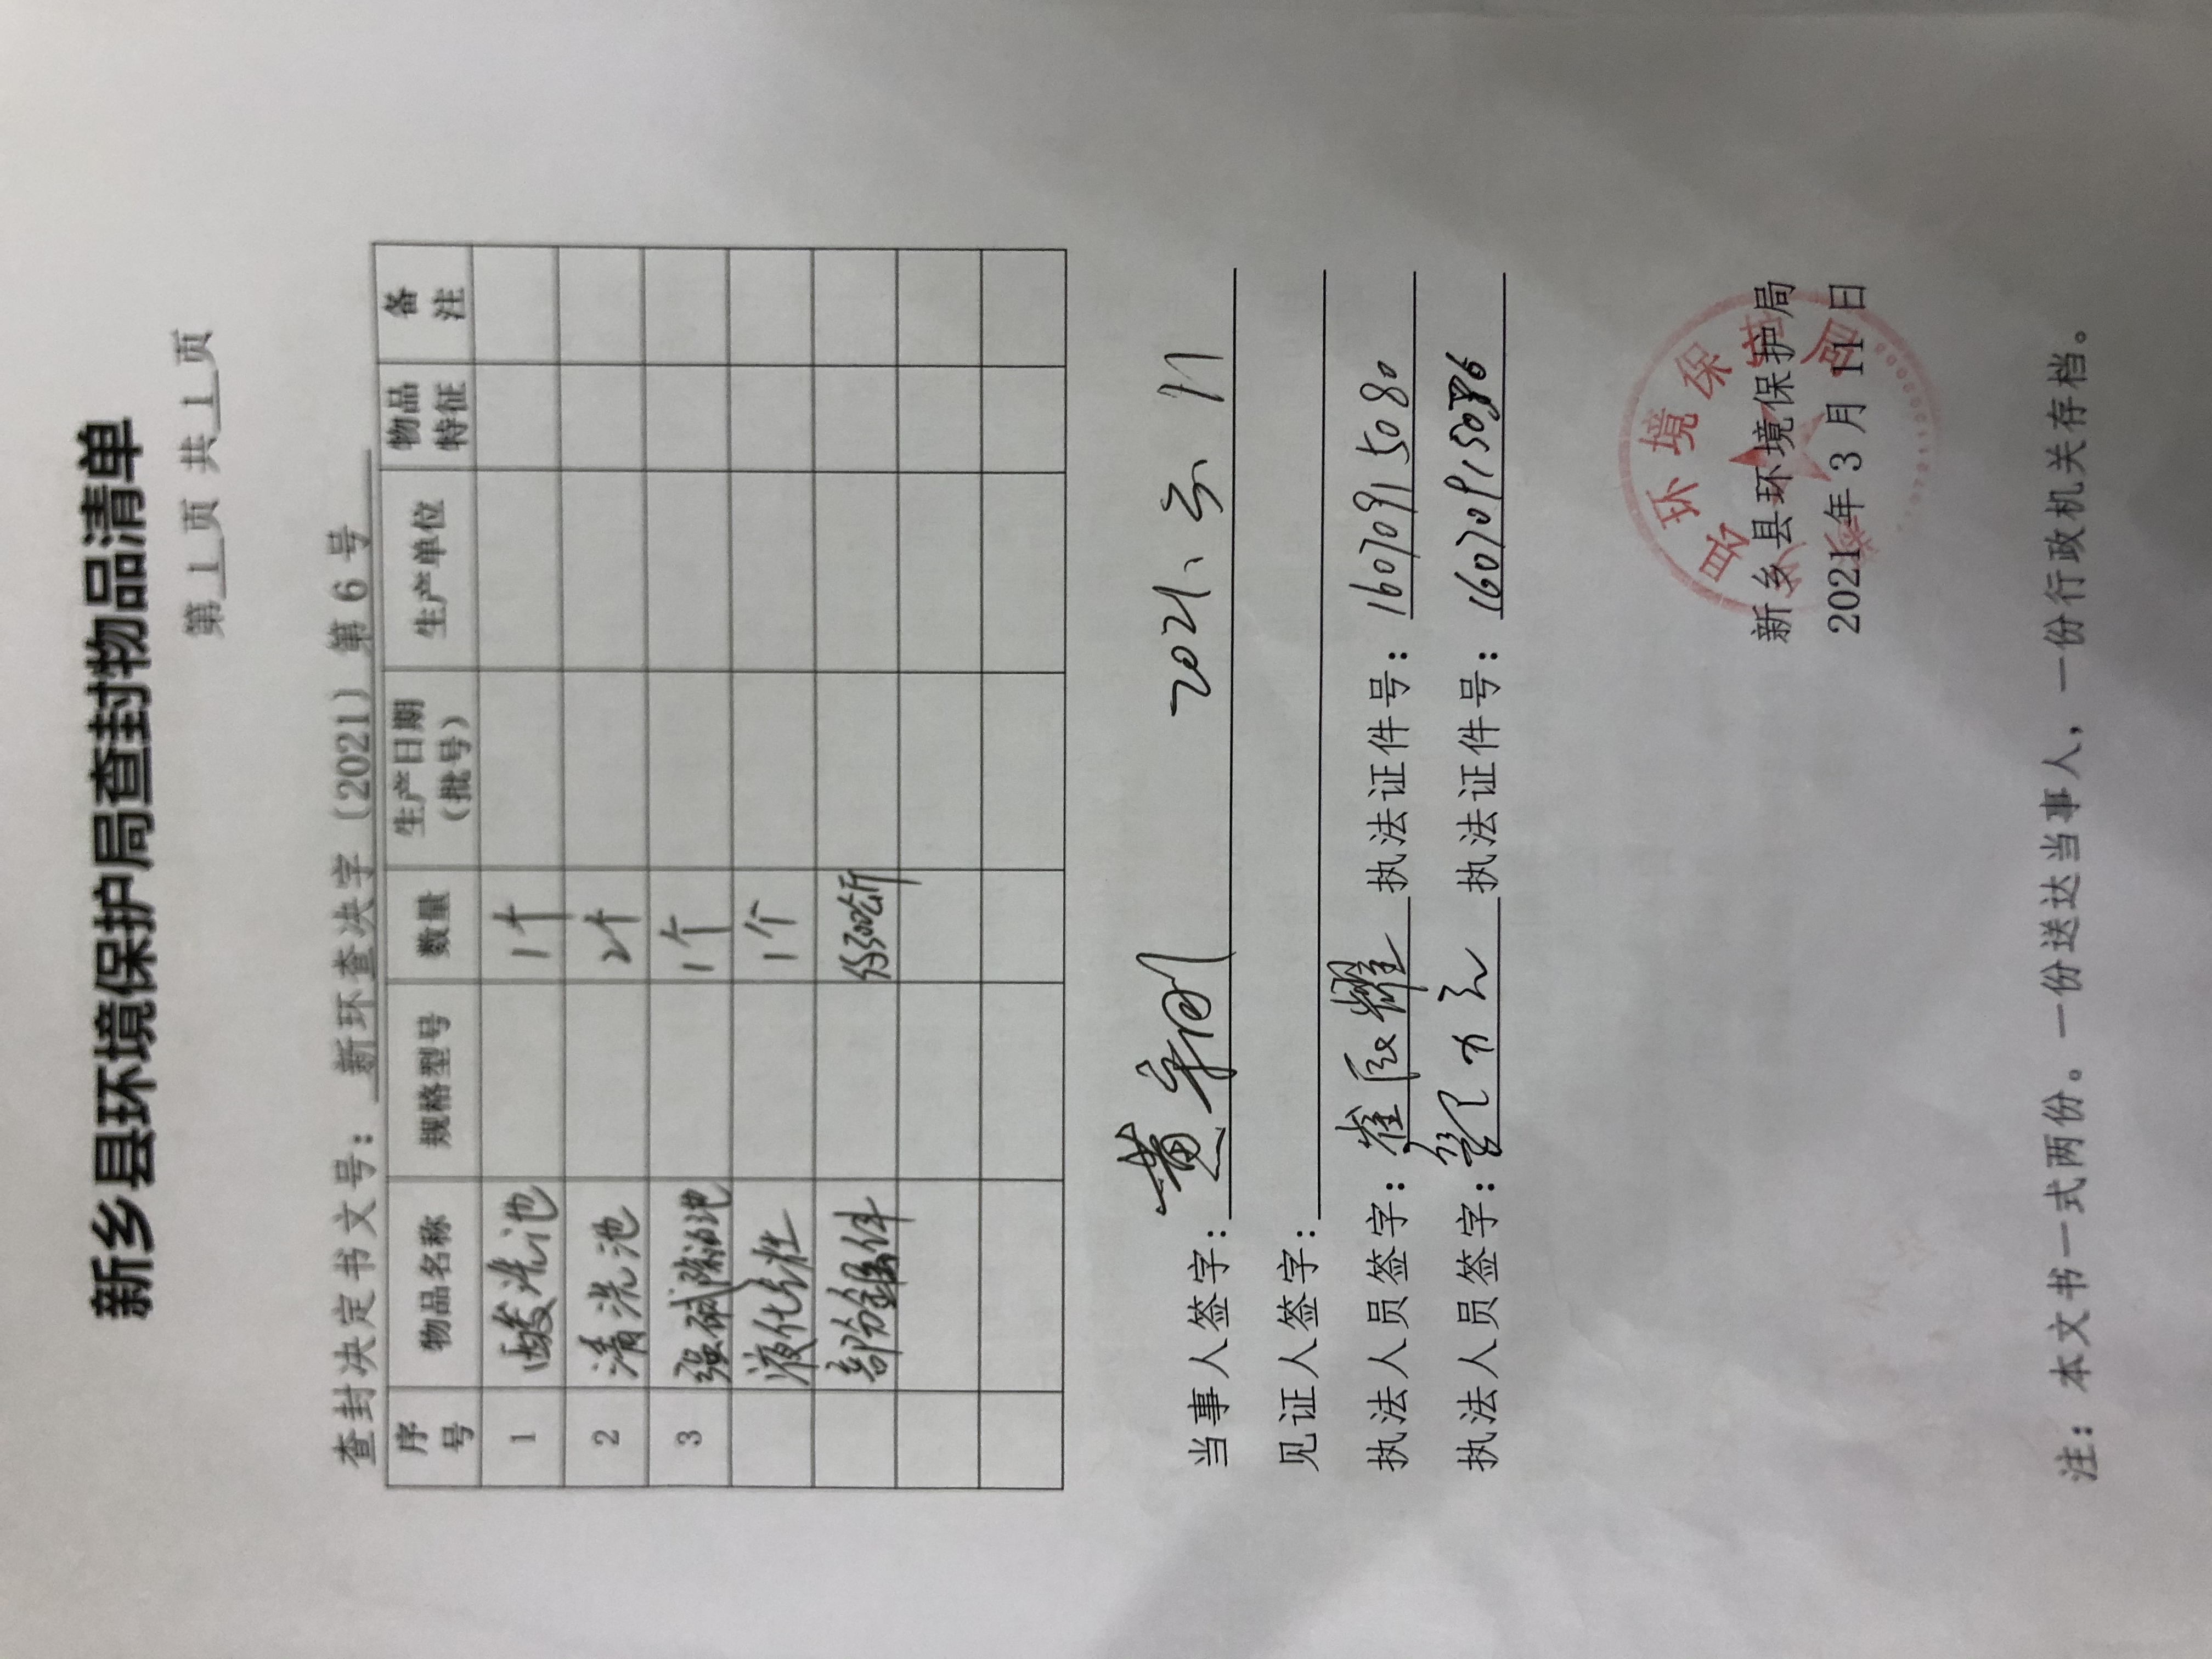 新乡县环境保护局查封物品清单
第 1 页 共 1 页
查封决定书文号：新环查决字〔2021〕第 6 号
序号 物品名称 规格型号 数量 生产日期（批号） 生产单位 物品特征 备注
1 酸洗池 1个
2 清洗池 2个
3 强碱除油池 1个
液化气灶 1个
部份镀件 约300公斤
当事人签字：黄 2021、3、11
见证人签字：
执法人员签字：崔 耀 执法证件号：16070915080
执法人员签字： 执法证件号：16070915086
新乡县环境保护局
2021年 3 月 11 日
注：本文书一式两份。一份送达当事人，一份行政机关存档。